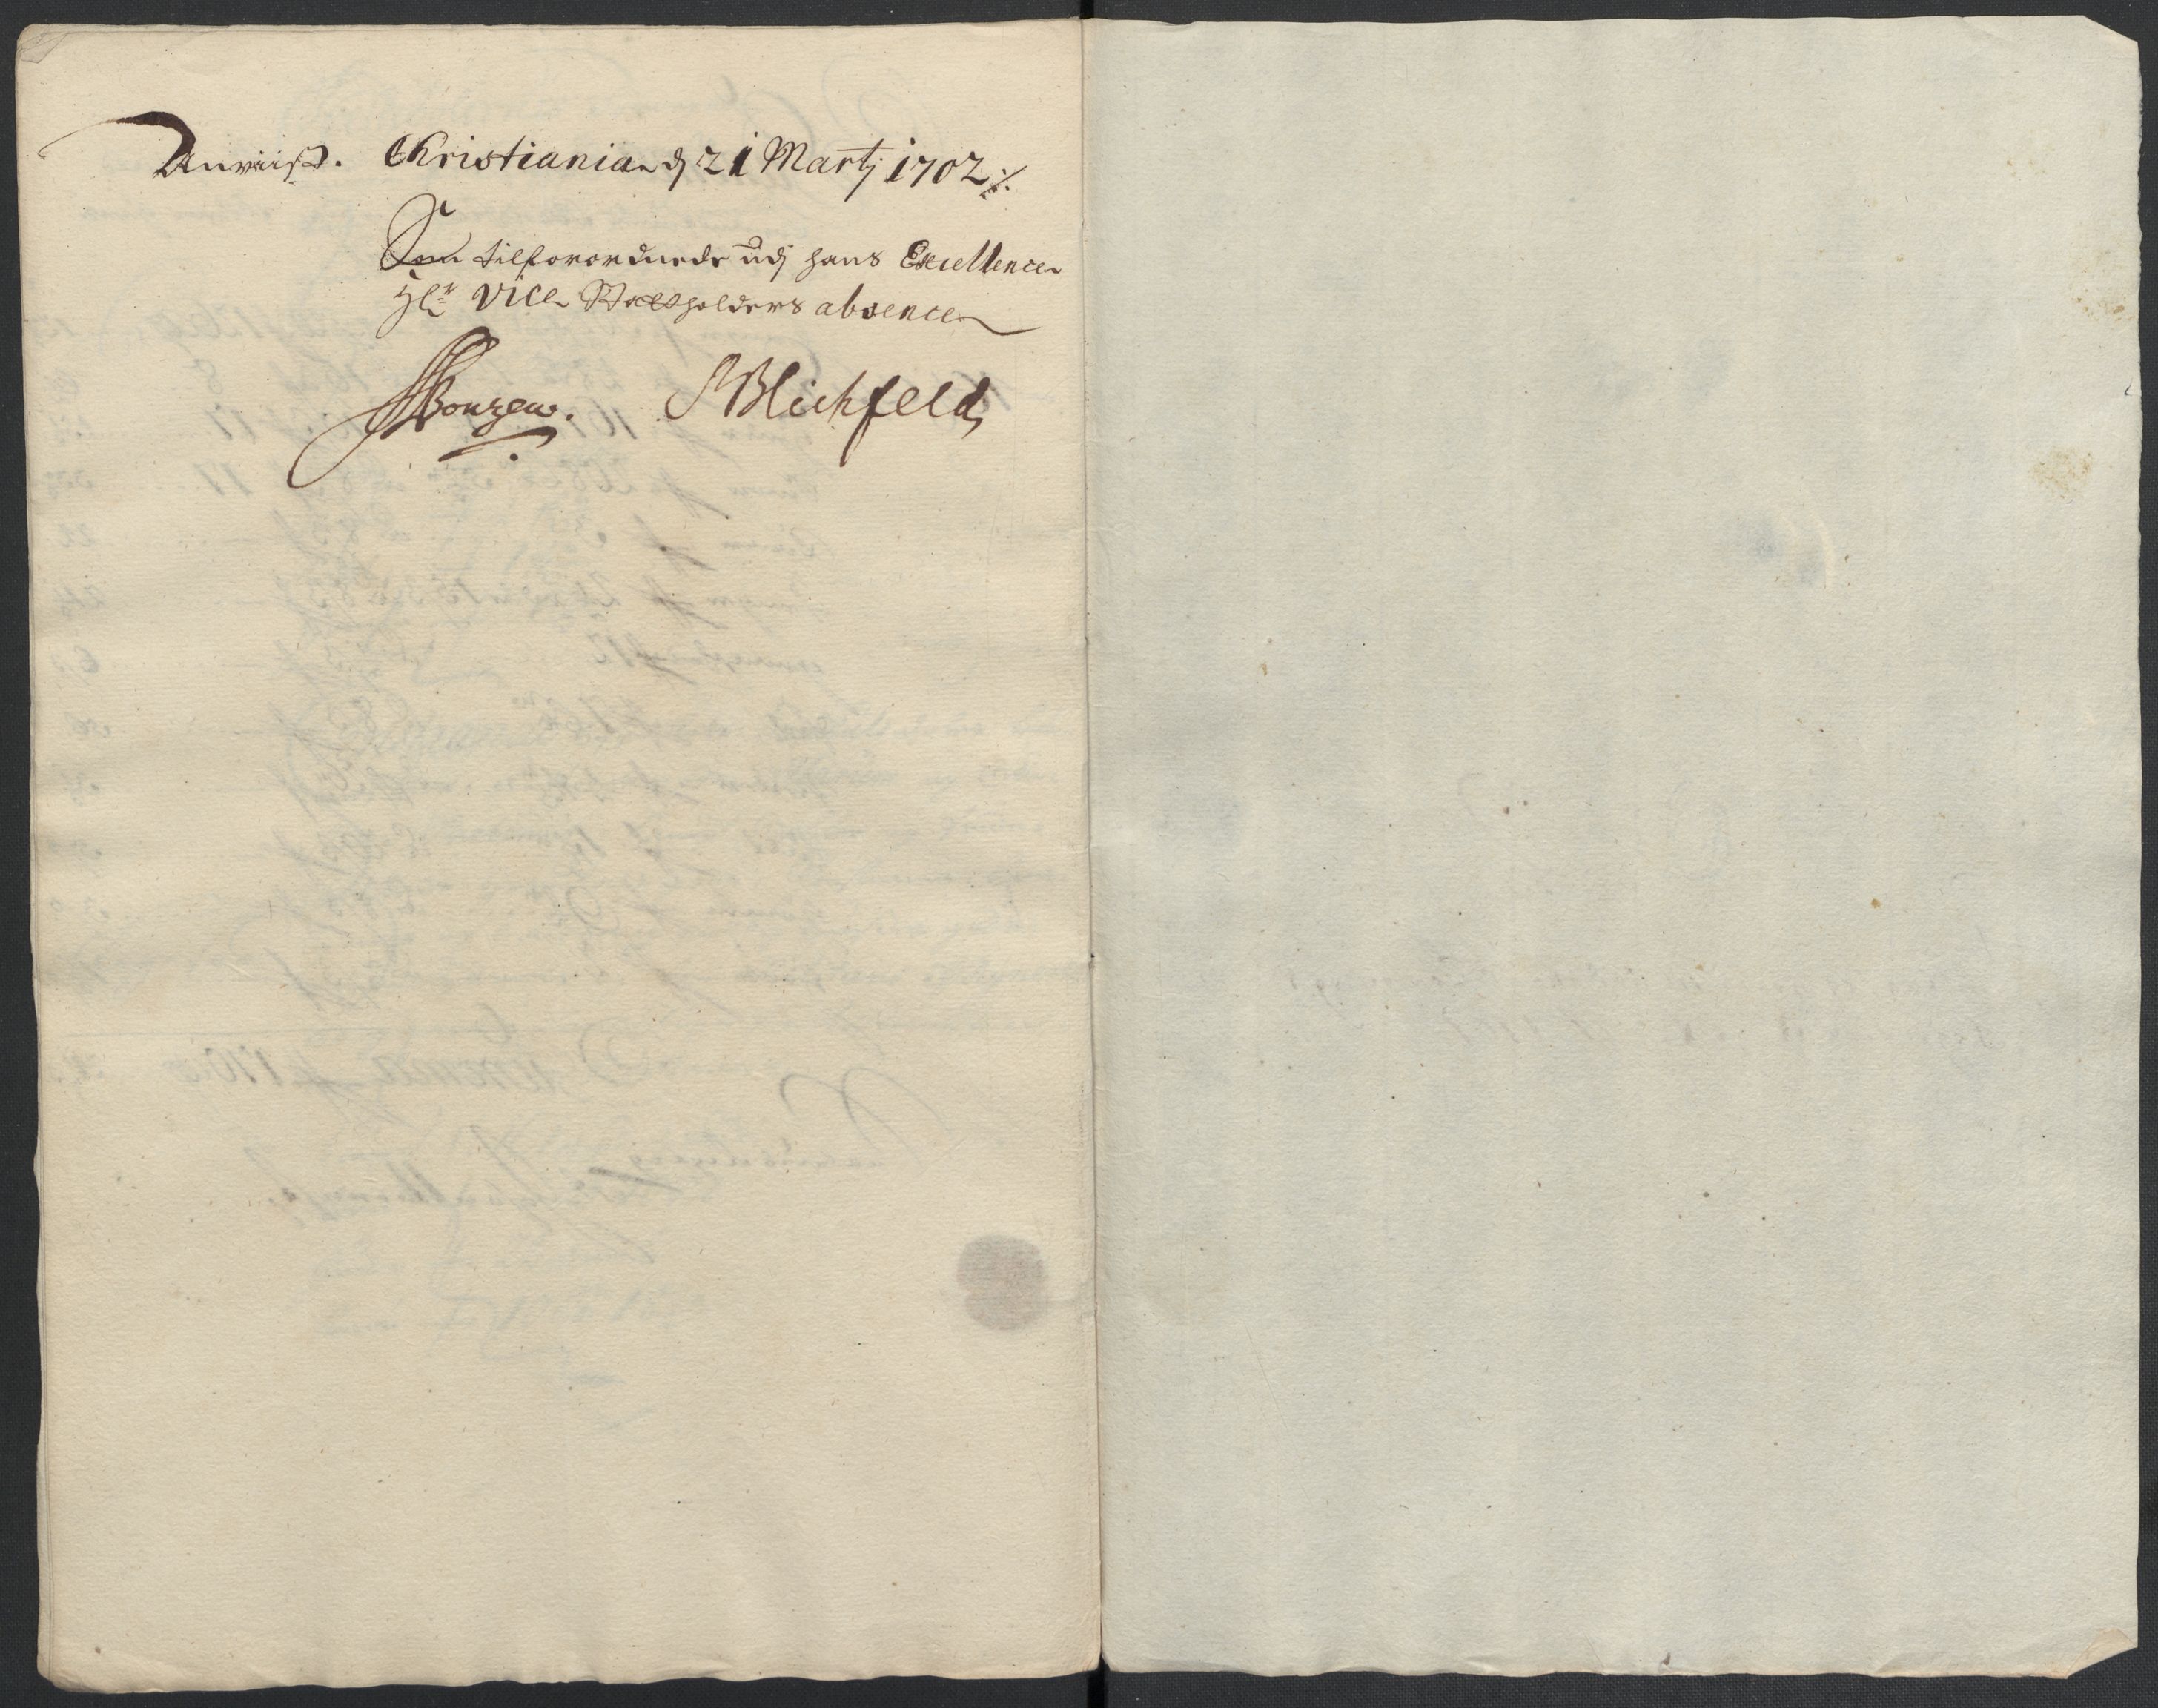 Anviist. Christiania dj 21 Martj 1702 ./.
Som tilforordnede udj hans Excellence
Hr. Vice Statholders absence
Blichfeld